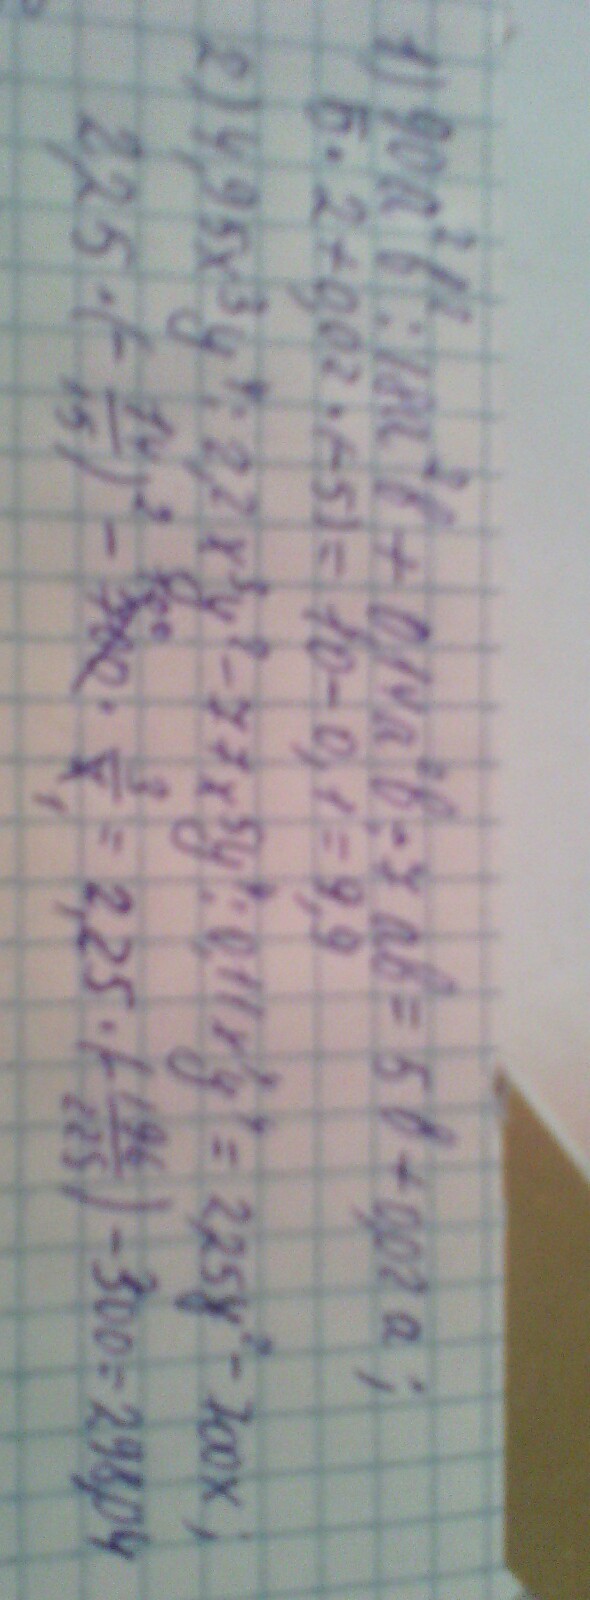 1) 90a²b²: 18a²b + 0,14a²b : 7ab = 5b + 0,02a ;
5 · 2 + 0,02 · (-5) = 10 - 0,1 = 9,9
2) 4,95x³y⁴ : 2,2x³y² - 77x⁵y⁴ : 0,11x⁴y⁴ = 2,25y² - 700x ;
2,25 · (- 14/15)² - 700 · 3/7 = 2,25 · ( 196/225 ) - 300 = 298,04